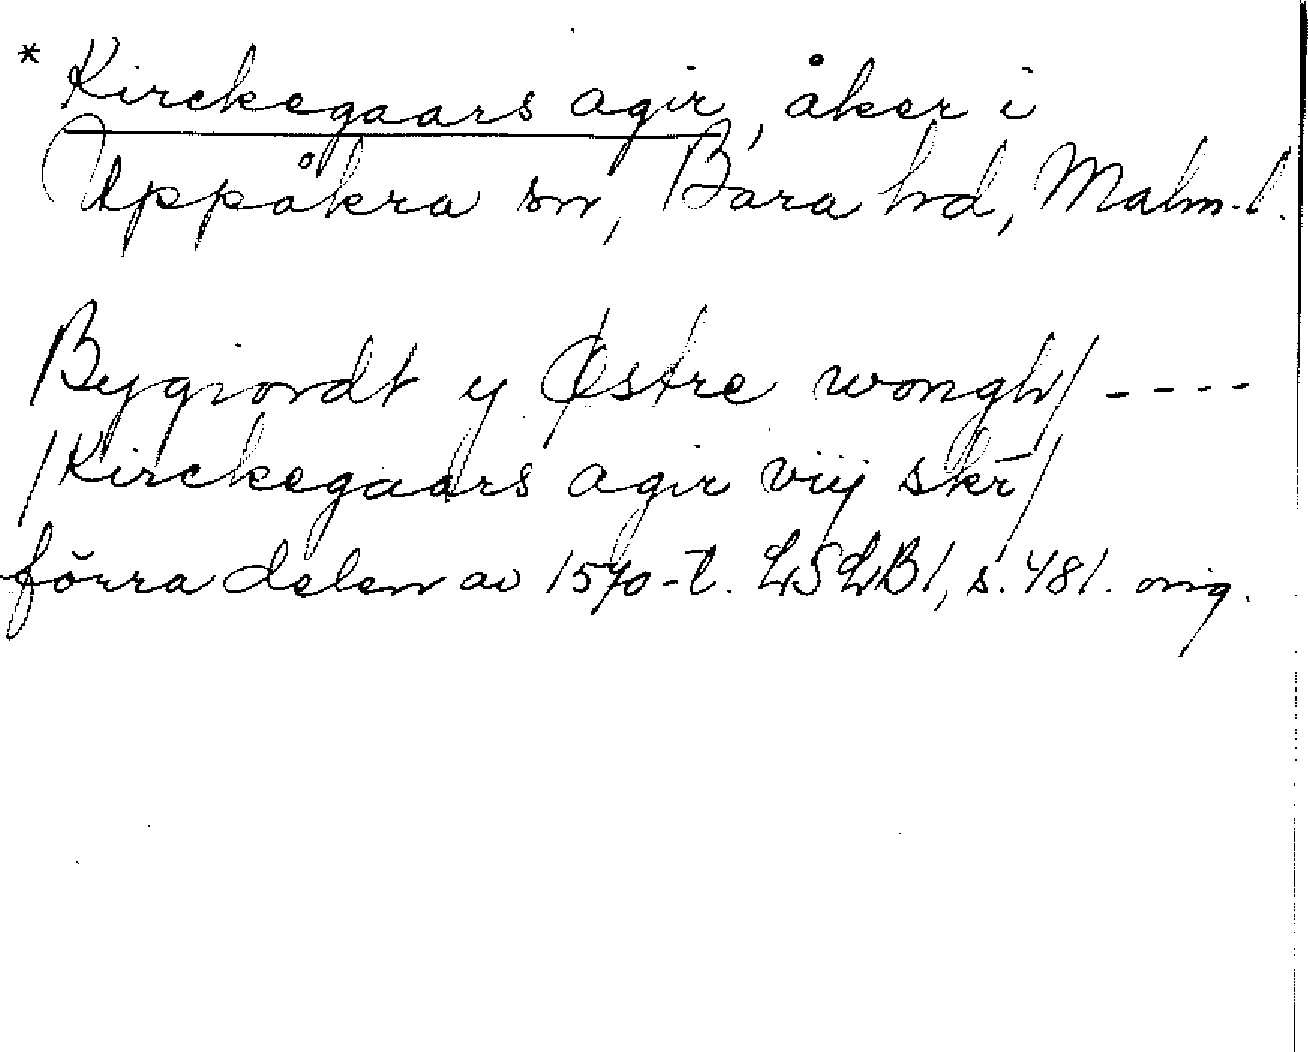 * Kirckegaars agir, åker i
Uppåkra sn, Bara hd, Malm.l.
/Bygiordt y Østre wongh/ ----
/Kirckegaars agir viij skr/
förra delen av 1570-t. LSLB1, s. 481. orig.